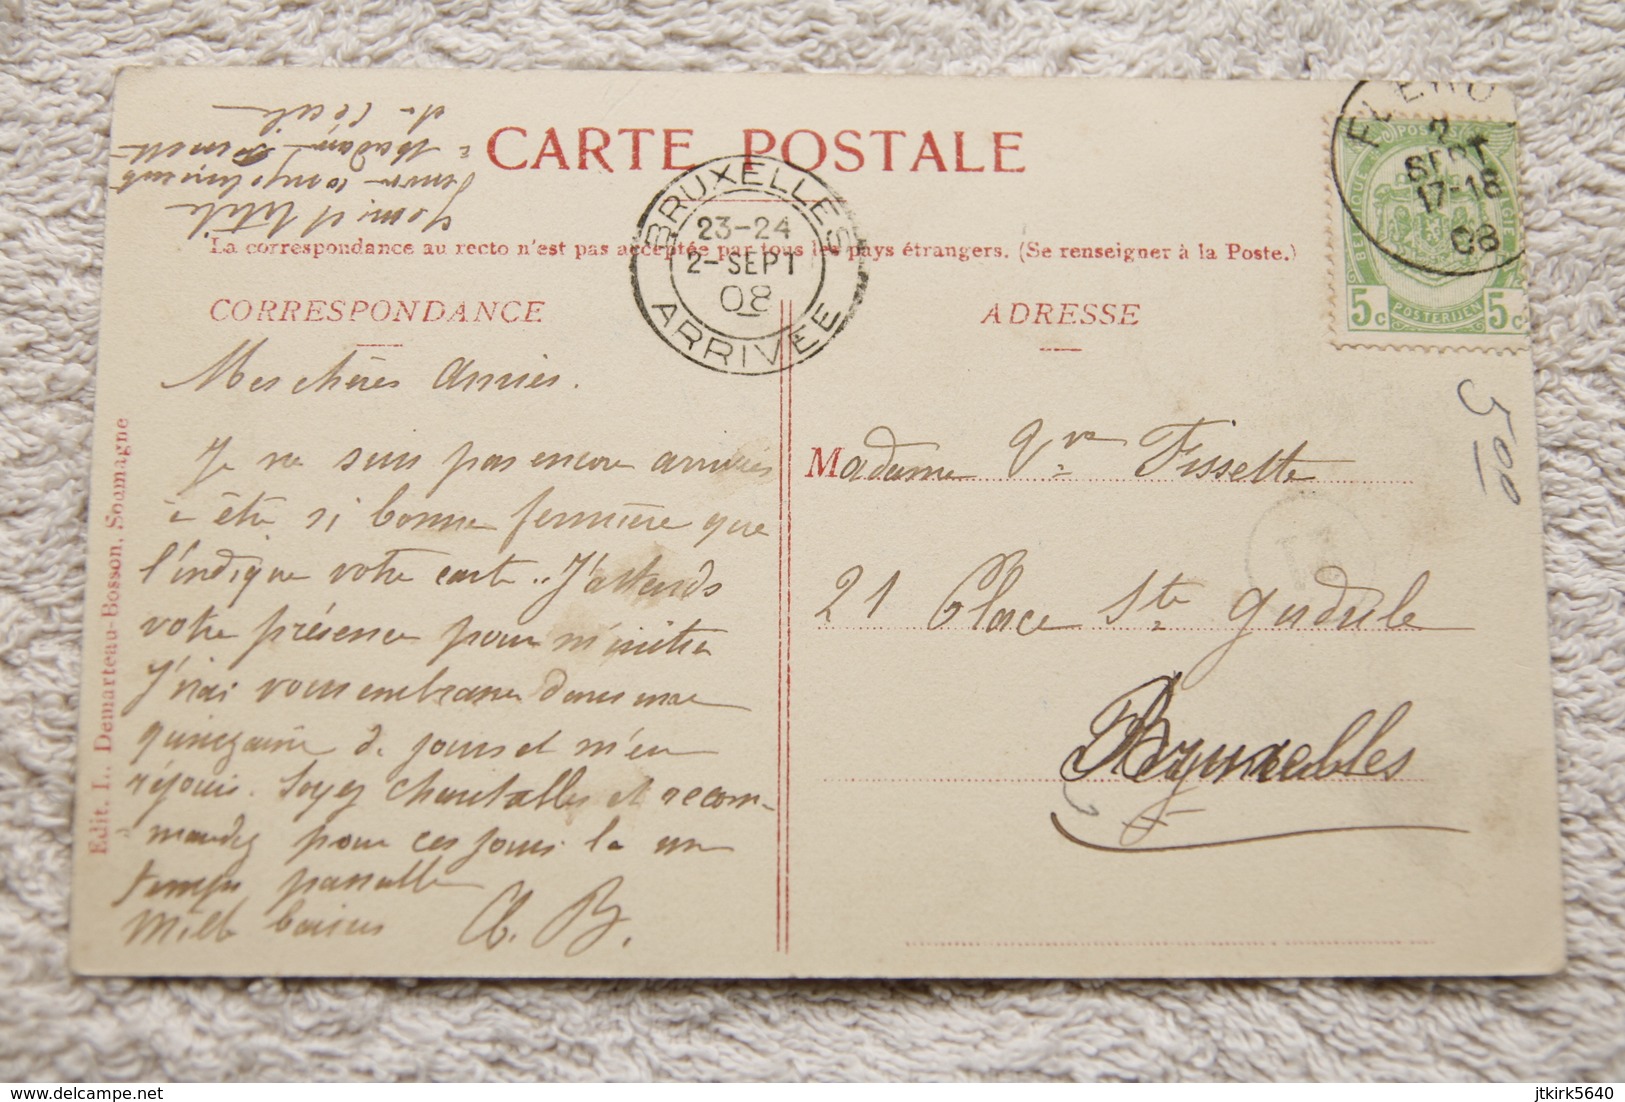 CARTE POSTALE
La correspondance au recto n'est pas acceptée par tous les pays étrangers. (Se renseigner à la Poste.)
BRUXELLES
23-24
2-SEPT
08
ARRIVEE
FLERO
2
SEPT
17-18
08
BELGIQUE POSTES
BELGIË POSTERIJEN
5c 5c
CORRESPONDANCE
ADRESSE
Mes chères Amies.
Je ne suis pas encore arrivée
à être si bonne fermière que
l'indique votre carte.. J'attends
votre présence pour m'initier
J'irai vous embrasser dans une
quinzaine de jours et m'en
réjouis. Soyez chantalles et recom-
mandez pour ces jours là un
temps passable
Mille baisers Cl. B.
à Madame
de Cécile
5 00
Madame Vve Fissette
21 Place Ste Gudule
Bruxelles
Edit. L. Demarteau-Bosson, Soumagne
jtkirk5640